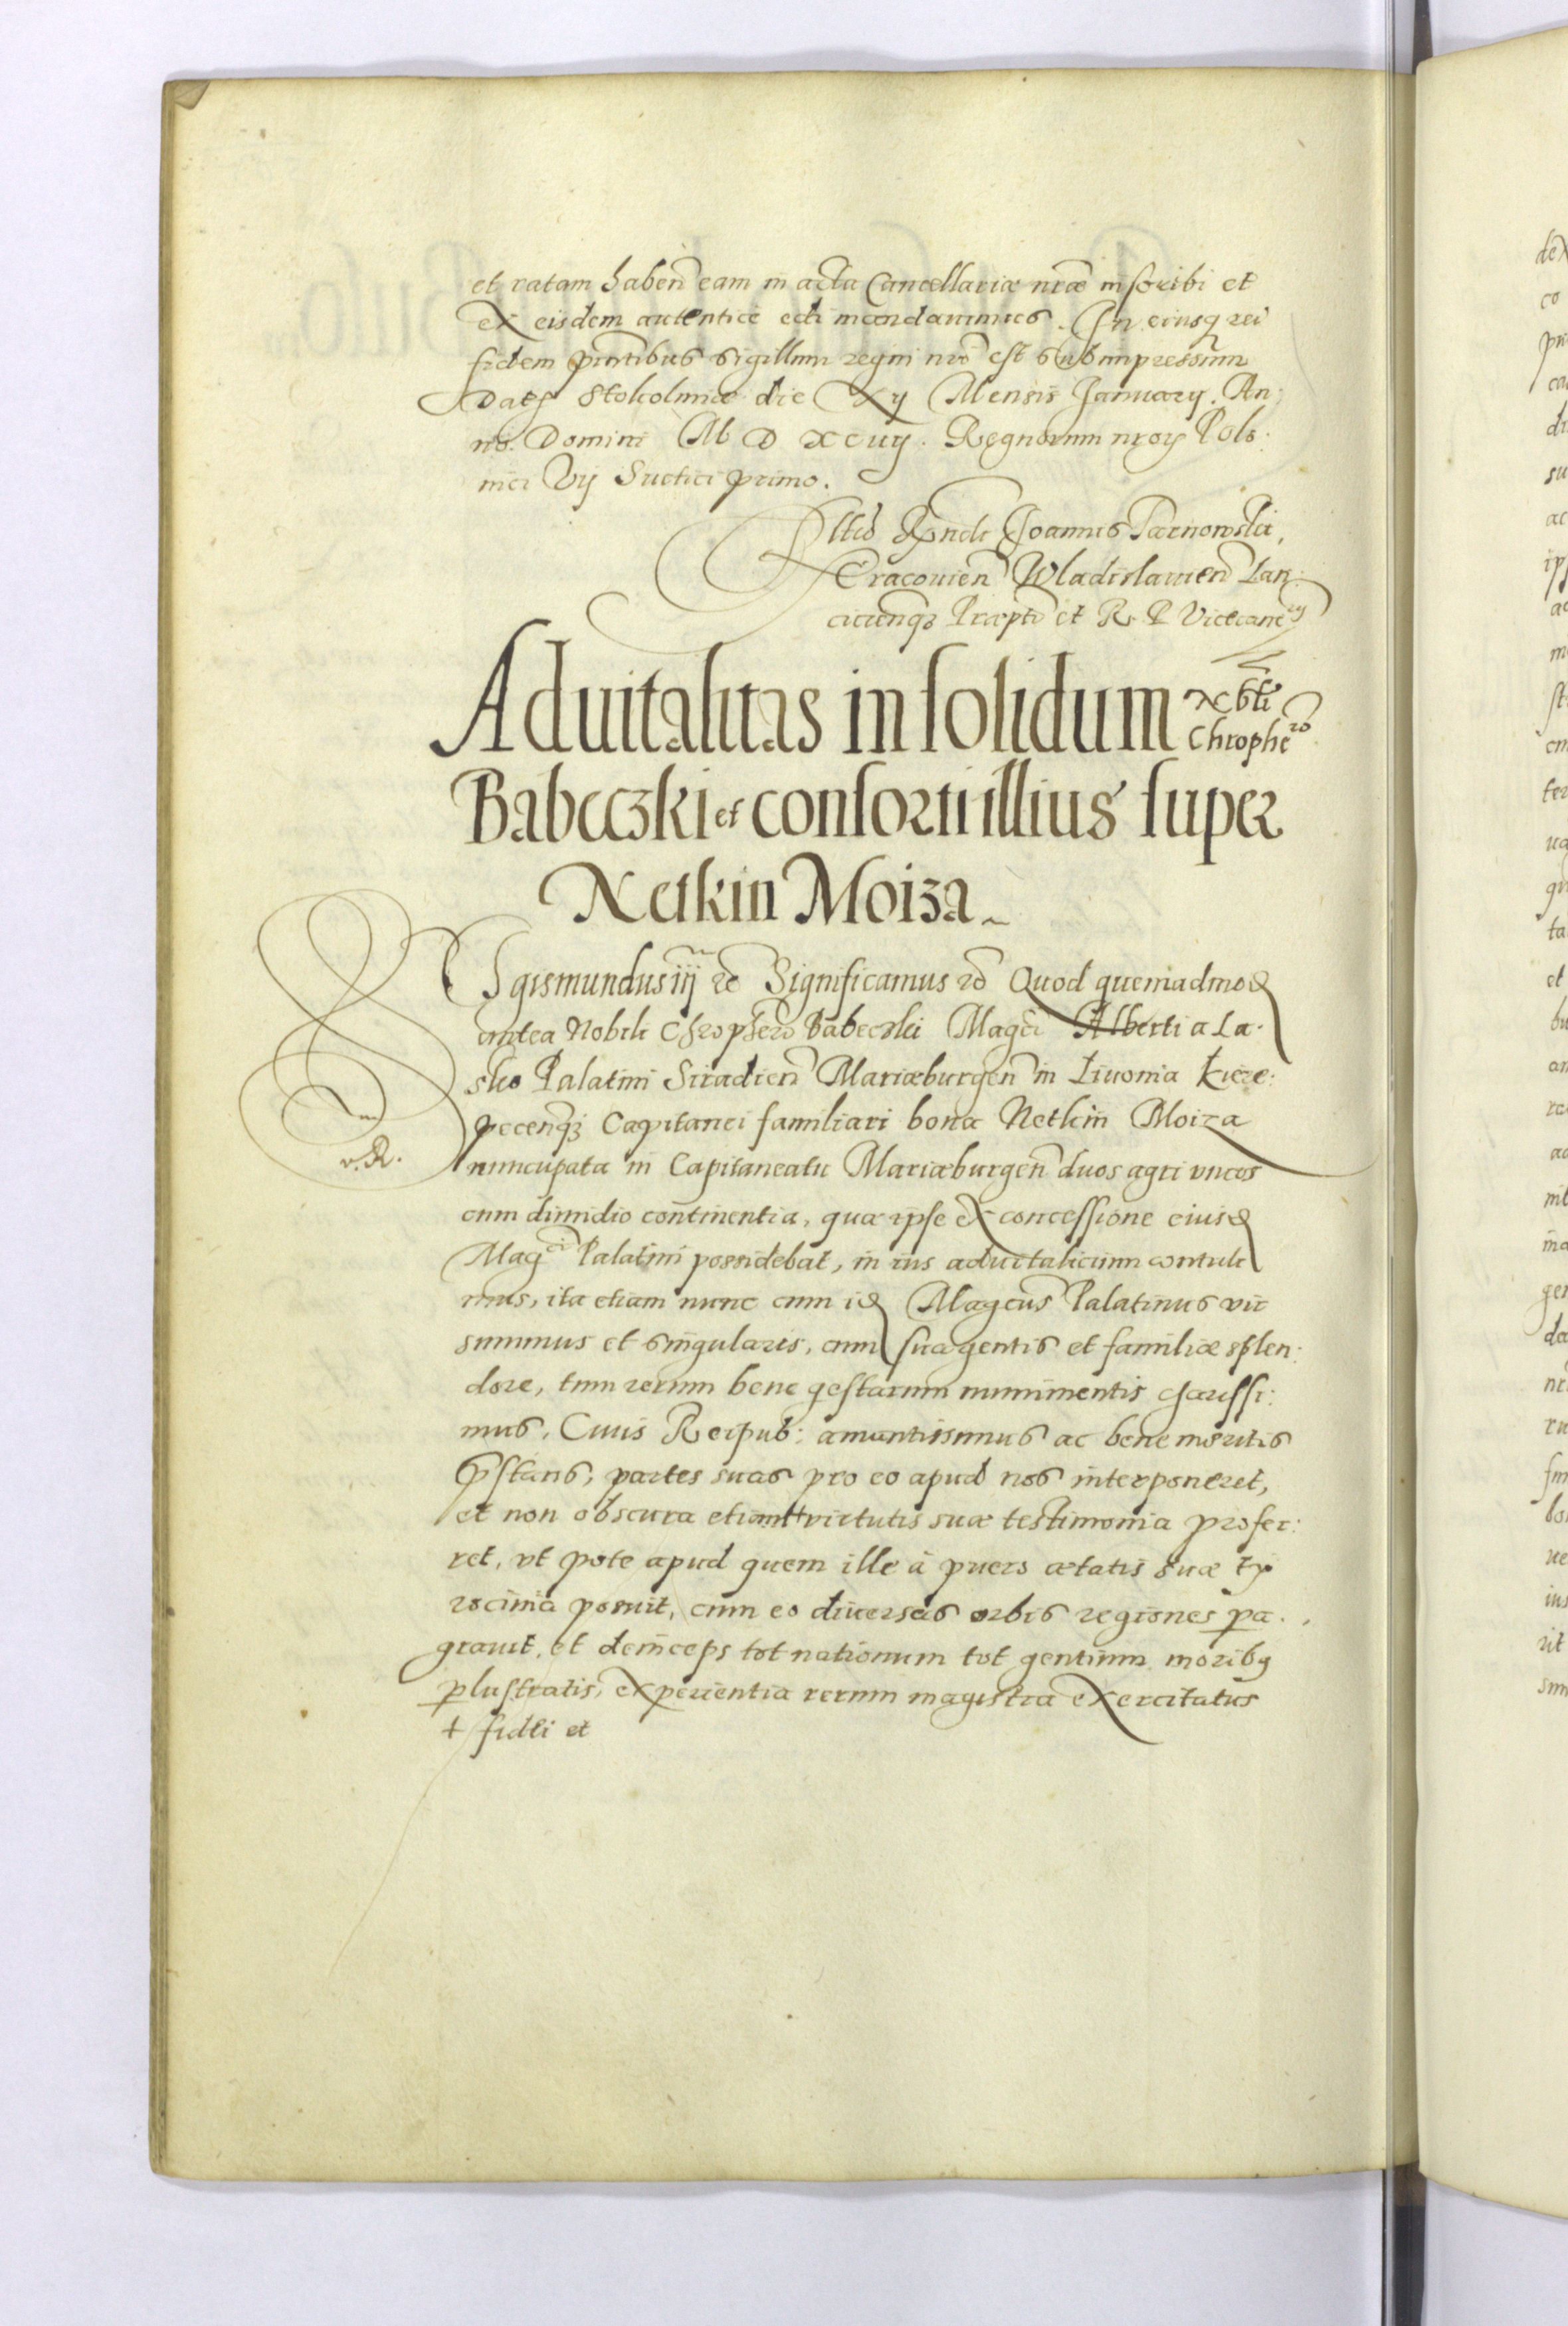 et ratam haben̄ eam in acta Cancellariæ nr̄æ inscribi et
ex eisdem autentice edi mandauimus. In eiusq̨ rei
fidem pn̄tibus sigillum regni nrō est subimpressum
Dat̄ Stokolmiæ die Xij Mensis January. An:
no. Domini M D XCiiij. Regnorum nror̄ Polo:
niæ Vij Suetiæ primo.
Joannis Tarnowski,
Cracouien̄ Wladislauien̄ Lan:
ciciēnq̨ Præpti et R. P. Vicecancry
Aduitalitas in solidum Nobli
Chrophero
Babeczki et consorti illius super
Netkin Moiza
Sgismundus iij rc Significamus rc Quod quemadmod
antea Nobili Chrophero Babeczki Magci Alberti a La.
sko Palatini Siradien̄ Mariæburgen̄ in Liuonia Kieze:
pecenq̨ Capitanei familiari bona Netkin Moiza
nuncupata in Capitaneatu Mariæburgen̄ duos agri vncos
cum dimidio continentia, quæ ipse ex concessione eiusd
Magci Palatini possidebat, in ius aduitalicium contuli
mus, ita etiam nunc cum id Magcus Palatinus vir
summus et singularis, cum suæ gentis et familiæ splen:
dore, tum rerum bene gestarum munimentis charissi:
mus, Ciuis Reipub: amantissimus ac bene meritis
p̄stans, partes suas pro eo apud nos interponeret,
et non obscura etiam + virtutis suæ testimonia profer:
ret, vt pote apud quem ille à puero ætatis suæ ty
rocinia posuit, cum eo diuersas orbis regiones pa.
grauit, et deinceps tot nationum tot gentium morib9
plustratis, experientia rerum magistra exercitatus
+ fidei et
v. R.